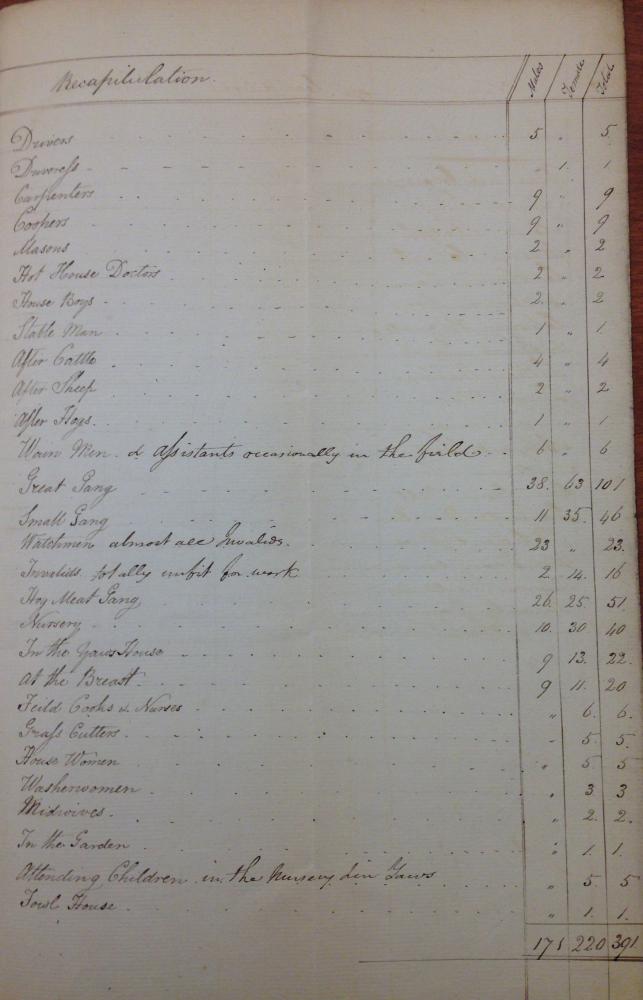 Recapitulation. Males Female Total
Drivers 5 " 5
Driveress " 1 1
Carpenters 9 " 9
Coopers 9 " 9
Masons 2 " 2
Hot House Doctors 2 " 2
House Boys 2 " 2
Stable Man 1 " 1
After Cattle 4 " 4
After Sheep 2 " 2
After Hogs 1 " 1
Wain Men & Assistants occasionally in the field 6 " 6
Great Gang 38 63 101
Small Gang 11 35 46
Watchmen almost all Invalids 23 " 23
Invalids totally unfit for work 2 14 16
Hog Meat Gang 26 25 51
Nursery 10 30 40
In the Yaws House 9 13 22
At the Breast 9 11 20
Feild Cooks & Nurses " 6 6
Grass Cutters " 5 5
House Women " 5 5
Washerwomen " 3 3
Midwives " 2 2
In the Garden " 1 1
Attending Children in the Nursery & in Yaws " 5 5
Fowl House " 1 1
171 220 391